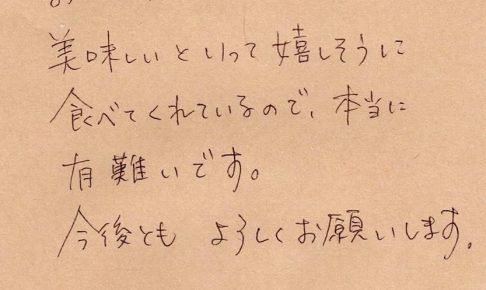 美味しいといって嬉しそうに
食べてくれているので、本当に
有難いです。
今後とも よろしくお願いします。